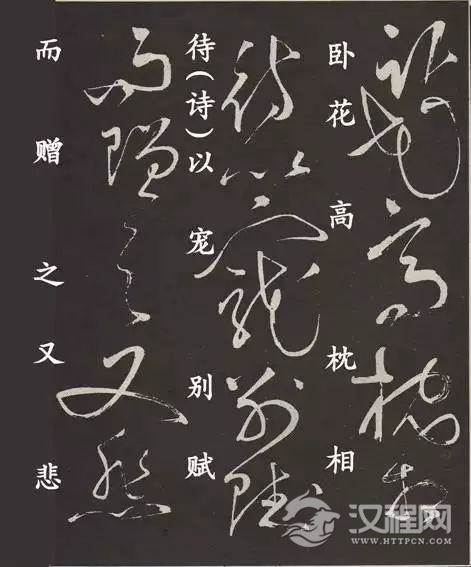 卧花高枕相
待(诗)以宠别赋
而赠之又悲
汉程网
WWW.HTTPCN.COM